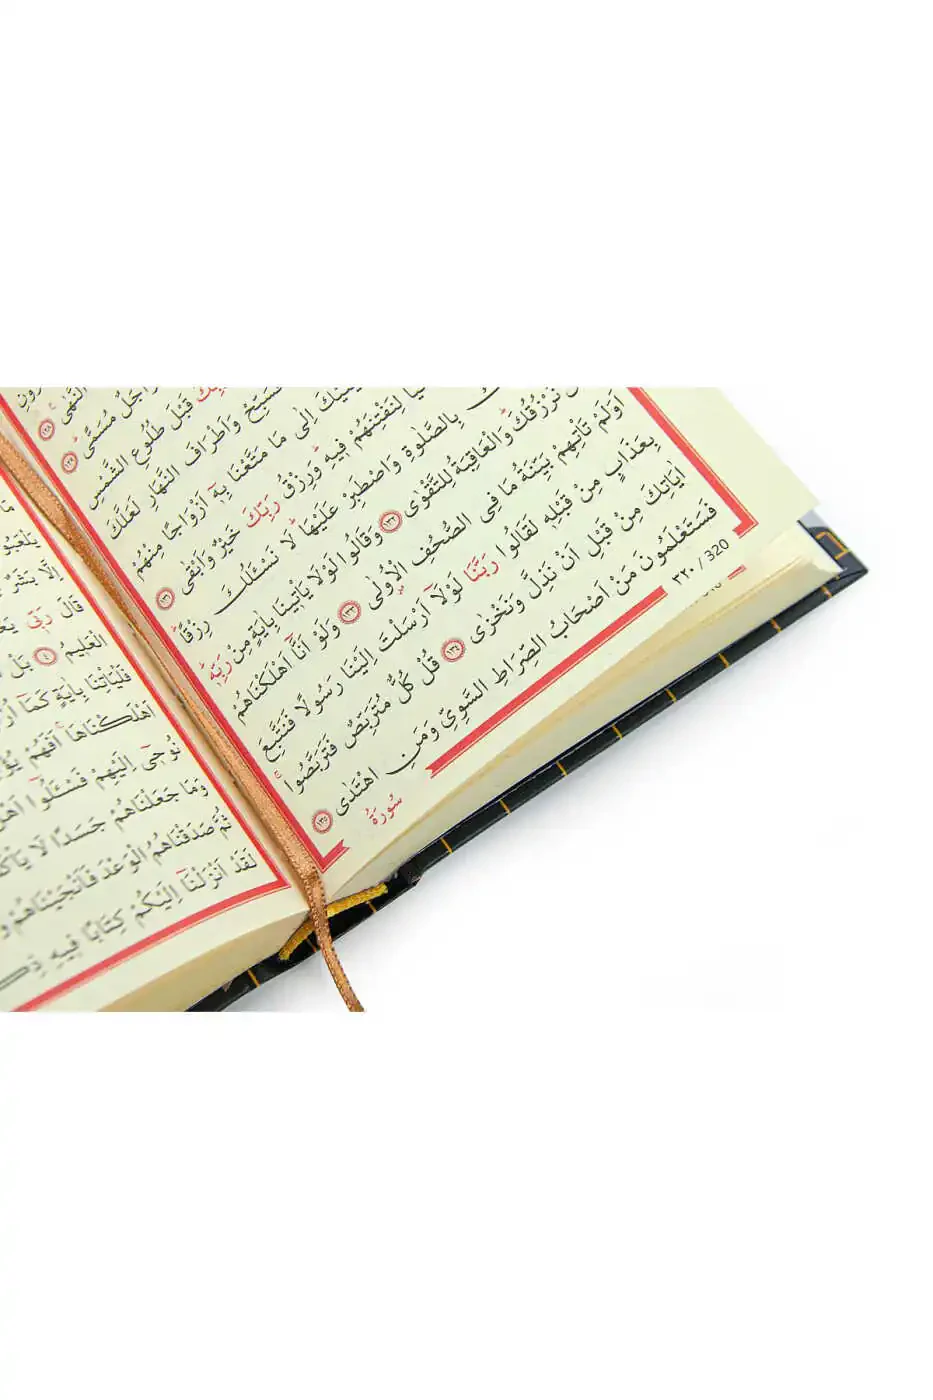 النُّهٰى ١٢٨
وَاَجَلٌ مُسَمًّى ١٢٩
رَبِّكَ قَبْلَ طُلُوعِ الشَّمْسِ
فَسَبِّحْ وَاَطْرَافَ النَّهَارِ لَعَلَّكَ
اِلٰى مَا مَتَّعْنَا بِهٖٓ اَزْوَاجًا مِنْهُمْ
لِنَفْتِنَهُمْ فٖيهِ وَرِزْقُ رَبِّكَ خَيْرٌ وَاَبْقٰى ١٣١
بِالصَّلٰوةِ وَاصْطَبِرْ عَلَيْهَا لَا نَسْـَٔلُكَ رِزْقًا
نَرْزُقُكَ وَالْعَاقِبَةُ لِلتَّقْوٰى ١٣٢ وَقَالُوا لَوْلَا يَأْتٖينَا بِاٰيَةٍ مِنْ رَبِّهٖ
اَوَلَمْ تَأْتِهِمْ بَيِّنَةُ مَا فِي الصُّحُفِ الْاُولٰى ١٣٣ وَلَوْ اَنَّٓا اَهْلَكْنَاهُمْ
بِعَذَابٍ مِنْ قَبْلِهٖ لَقَالُوا رَبَّنَا لَوْلَٓا اَرْسَلْتَ اِلَيْنَا رَسُولًا فَنَتَّبِعَ
اٰيَاتِكَ مِنْ قَبْلِ اَنْ نَذِلَّ وَنَخْزٰى ١٣٤ قُلْ كُلٌّ مُتَرَبِّصٌ فَتَرَبَّصُوا
فَسَتَعْلَمُونَ مَنْ اَصْحَابُ الصِّرَاطِ السَّوِيِّ وَمَنِ اهْتَدٰى ١٣٥
٣٢٠ / 320
سُورَةُ
مَا
يَلْعَبُو
اِلَّا بَشَرٌ
قَالَ رَبّٖي يَعْ
الْعَلٖيمُ ٤ بَلْ
فَلْيَأْتِنَا بِاٰيَةٍ كَمَٓا اُرْ
اَهْلَكْنَاهَا اَفَهُمْ يُؤْ
نُوحٖٓي اِلَيْهِمْ فَسْـَٔلُٓوا اَهْلَ
وَمَا جَعَلْنَاهُمْ جَسَدًا لَا يَأْكُ
ثُمَّ صَدَقْنَاهُمُ الْوَعْدَ فَاَنْجَيْنَاهُمْ وَ
لَقَدْ اَنْزَلْنَٓا اِلَيْكُمْ كِتَابًا فٖيهِ ذِكْ